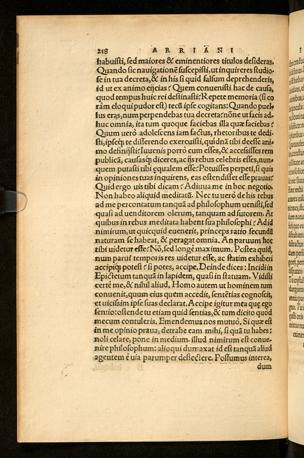 218 ARRIANI
habuisti, sed maiores & eminentiores titulos desideras.
Quando sic nauigationē suscepisti, ut inquireres studio-
se in tua decreta, & in his si quid falsum deprehenderis,
id ut ex animo eijcias? Quem conuenisti hac de causa,
quod tempus huic rei destinasti? Repete memoria (si co
rām eloqui pudor est) tecū ipse cogitans: Quando puel-
lus eras, num perpendebas tua decreta? nōne ut facis ad-
huc omnia, ita tum quoque faciebas illa quæ faciebas?
Quum uerò adolescens iam factus, rhetoribus te dedi-
sti, ipseq; te differendo exercuisti, quid nā tibi deesse ani-
mo definijsti? Iuuenis porrò cum esses, & accessisses rem
publicā, causasq; diceres, ac ijs rebus celebris esses, nun-
quem putasti tibi equalem esse? Potuisses perpeti, si quis
in opiniones tuas inquirens, eas ostendisset esse prauas?
Quid ergo uis tibi dicam? Adiuua me in hoc negotio.
Non habeo aliquid meditatū. Nec tu uerò de his rebus
ad me percontatum tanquā ad philosophum uenisti, sed
quasi ad uenditorem olerum, tanquam ad sutorem. At
quibus in rebus meditata habent sua philosophi? Ad id
nimirum, ut quicquid euenerit, princeps ratio secundū
naturam se habeat, & peragat omnia. An paruum hoc
tibi uidetur esse? Nō, sed longè maximum. Postea quid,
num parui temporis res uidetur esse, ac statim exhiberi
accipiq; potest? si potes, accipe. Deinde dices: Incidi in
Epictetum tanquā in lapidem, quasi in statuam. Vidisti
certè me, & nihil aliud. Homo autem ut hominem tum
conuenit, quum eius quem accedit, sententias cognoscit,
et uicissim ipse suas declarat. Accipe igitur mea que ego
sentio: ostende tu etiam quid sentias, & tum dicito quòd
mecum contuleris. Emendemus nos mutuò, Si quæ est
in me opinio praua, detrahe eam mihi, si quā tu habes:
noli celare, pone in medium. illud nimirum est conue-
nire philosophum: alioqui dum axat id est tanquā aliud
agentem è uia parumper deflectere. Possumus interea,
dum